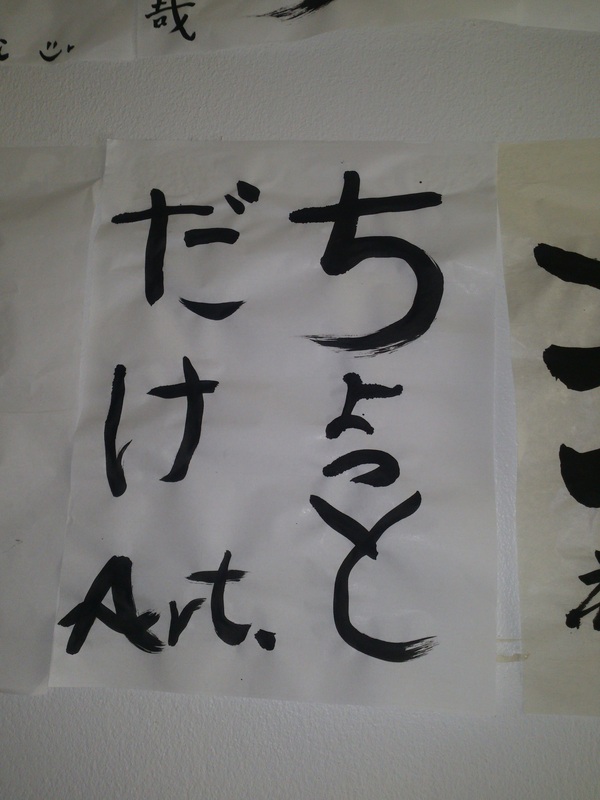 ちょっと
だけ
Art.
哉